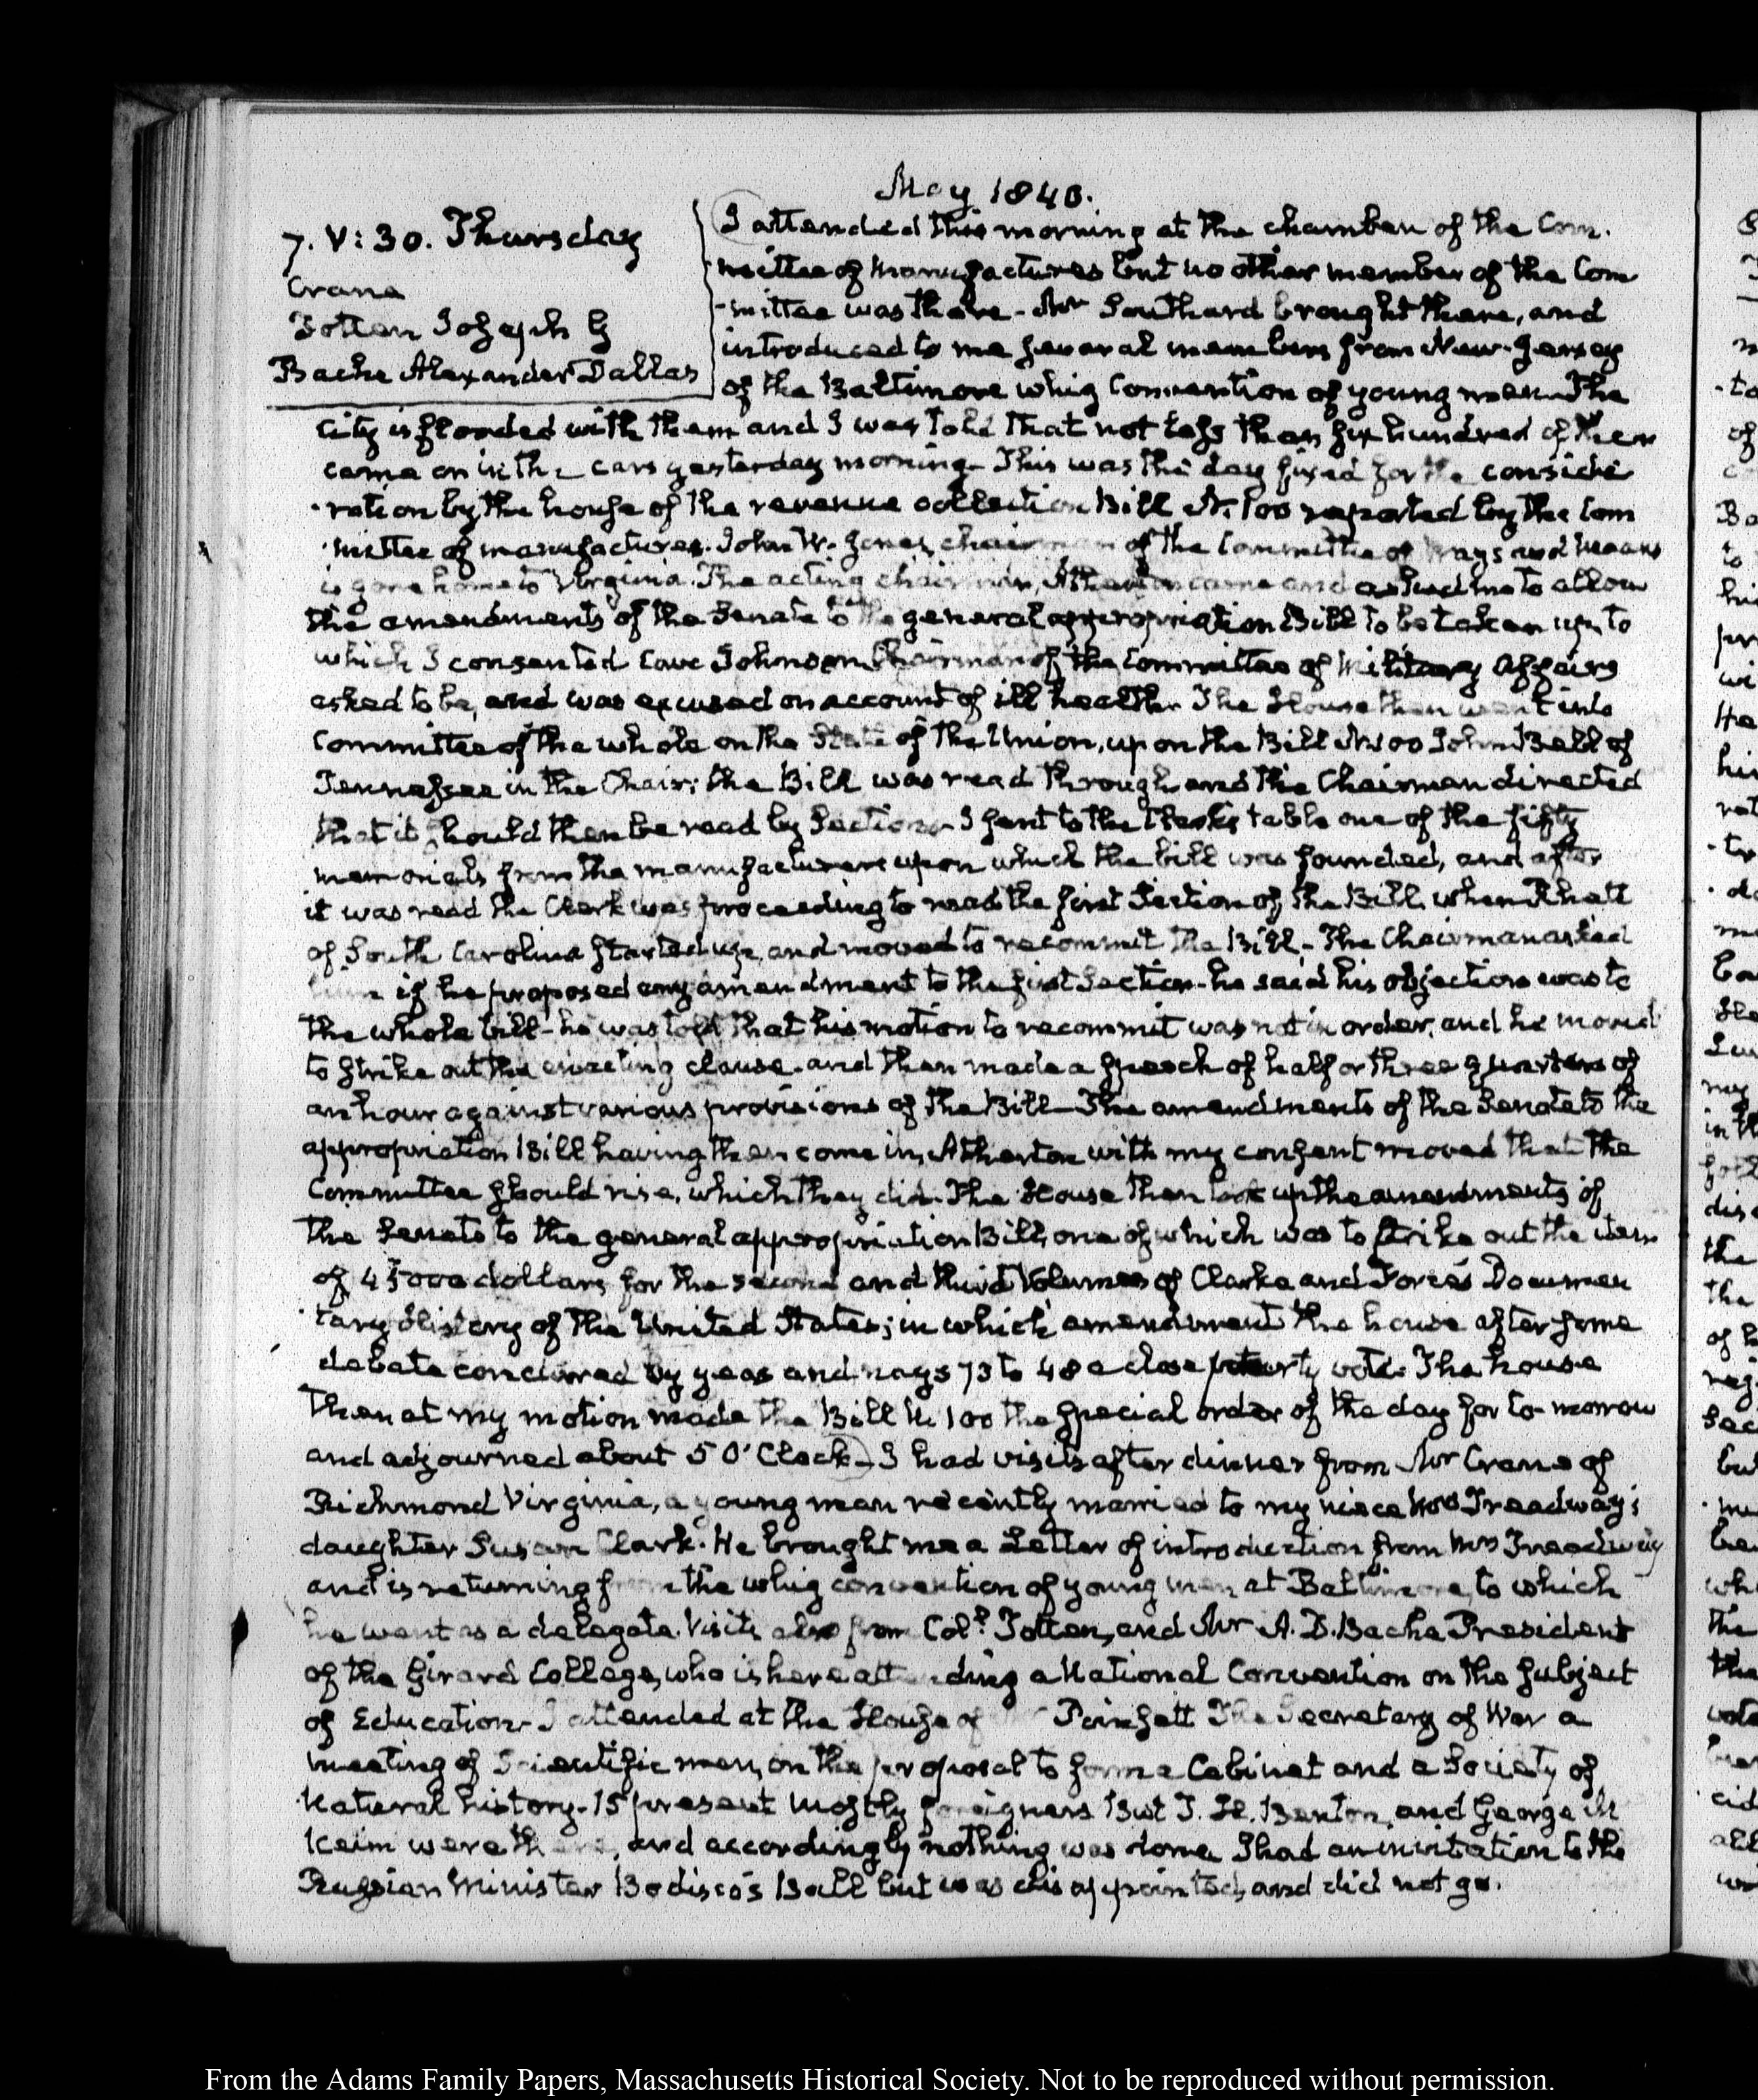 May 1840.
7. V: 30. Thursday
Crane
Totten Joseph G
Bache Alexander Dallas
I attended this morning at the chamber of the Com-
mittee of Manufactures but no other member of the Com
-mittee was there- Mr Southard brought there, and
introduced to me several members from New-Jersey
of the Baltimore whig Convention of young men- The
City is flooded with them and I was told that not less than six hundred of them
came on in the cars yesterday morning- This was the day fixed for the conside
-ration by the house of the revenue collection Bill N. 100 reported by the Com
-mittee of manufactures. John W. Jones, chairman of the Committee of Ways and Means
is gone home to Virginia. The acting chairman, Atherton came and asked me to allow
the amendments of the Senate to the general appropriation Bill to be taken up, to
which I consented Cave Johnson Chairman of the Committee of Military Affairs
asked to be, and was excused on account of ill health- The House then went into
Committee of the whole on the State of the Union, upon the Bill N. 100 John Bell of
Tennessee in the Chair: the Bill was read through and the Chairman directed
that it should then be read by Sections- I sent to the Clerk's table one of the fifty
memorials from the manufacturers upon which the bill was founded, and after
it was read the Clerk was proceeding to read the first Section of the Bill, when Rhett
of South Carolina started up, and moved to recommit the Bill- The Chairman asked
him if he proposed any amendment to the first Section- he said his objection was to
the whole bill- he was told that his motion to recommit was not in order, and he moved
to strike out the enacting clause- and then made a speech of half or three quarters of
an hour against various provisions of the Bill- The amendments of the Senate to the
appropriation Bill having then come in, Atherton with my consent moved that the
Committee should rise, which they did. The House then took up the amendments of
the Senate to the general appropriation Bill, one of which was to strike out the item
of 45000 dollars for the second and third Volumes of Clarke and Force's Documen
-tary History of the United States; in which amendment the house after some
debate concurred by yeas and nays 73 to 48 a close party vote. The house
then at my motion made the Bill N. 100 the special order of the day for to-morrow
and adjourned about 5 O'Clock- I had visits after dinner from Mr Crane of
Richmond Virginia, a young man recently married to my niece Mrs Treadway's
daughter Susan Clark. He brought me a Letter of introduction from Mrs Treadway
and is returning from the whig convention of young men at Baltimore, to which
he went as a delegate. Visits also from Coll. Totten, and Mr A. D. Bache President
of the Girard College, who is here attending a National Convention on the subject
of Education- I attended at the House of Poinsett The Secretary of War a
meeting of Scientific men, on the proposal to form a Cabinet and a Society of
Natural history- 15 present mostly foreigners But T. H. Benton, and George M
Keim were there, and accordingly nothing was done. I had an invitation to the
Russian Minister Bodisco's Ball but was disappointed, and did not go.
From the Adams Family Papers, Massachusetts Historical Society. Not to be reproduced without permission.